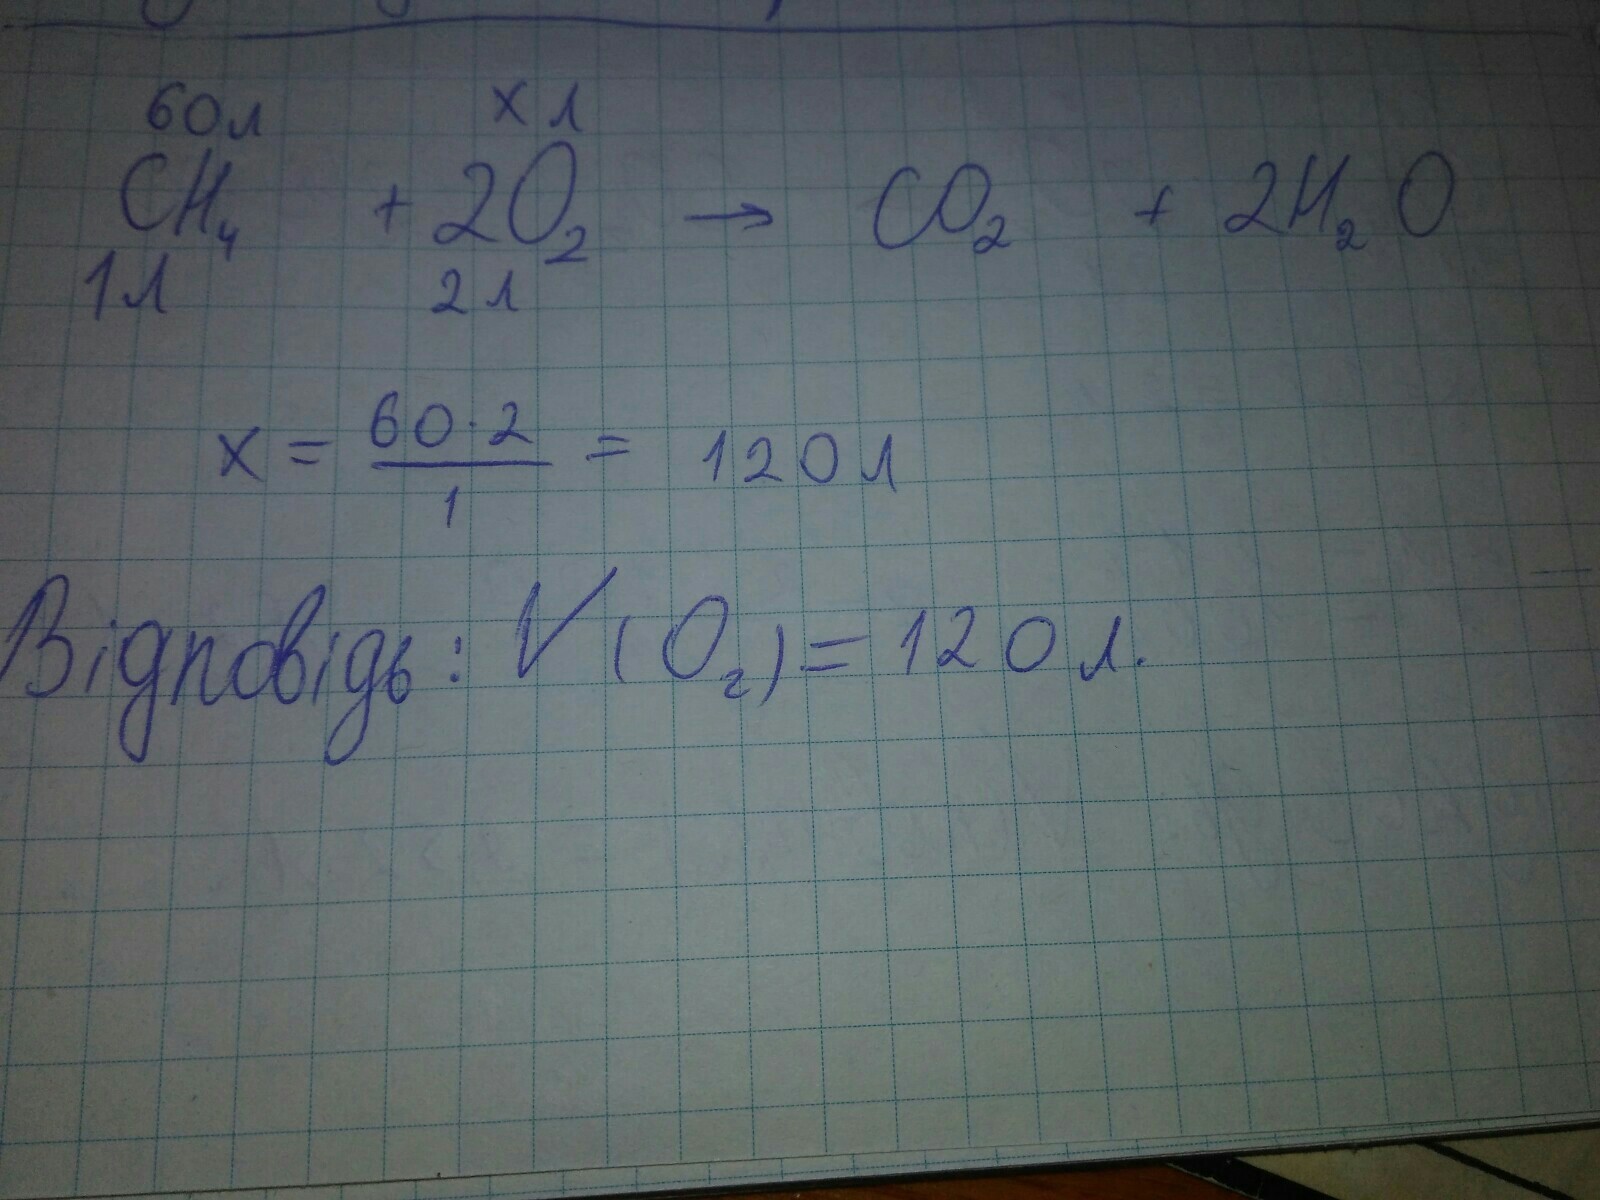 60л xл
CH₄ + 2O₂ → CO₂ + 2H₂O
1л 2л
x = 60·2/1 = 120л
Відповідь: V(O₂) = 120л.